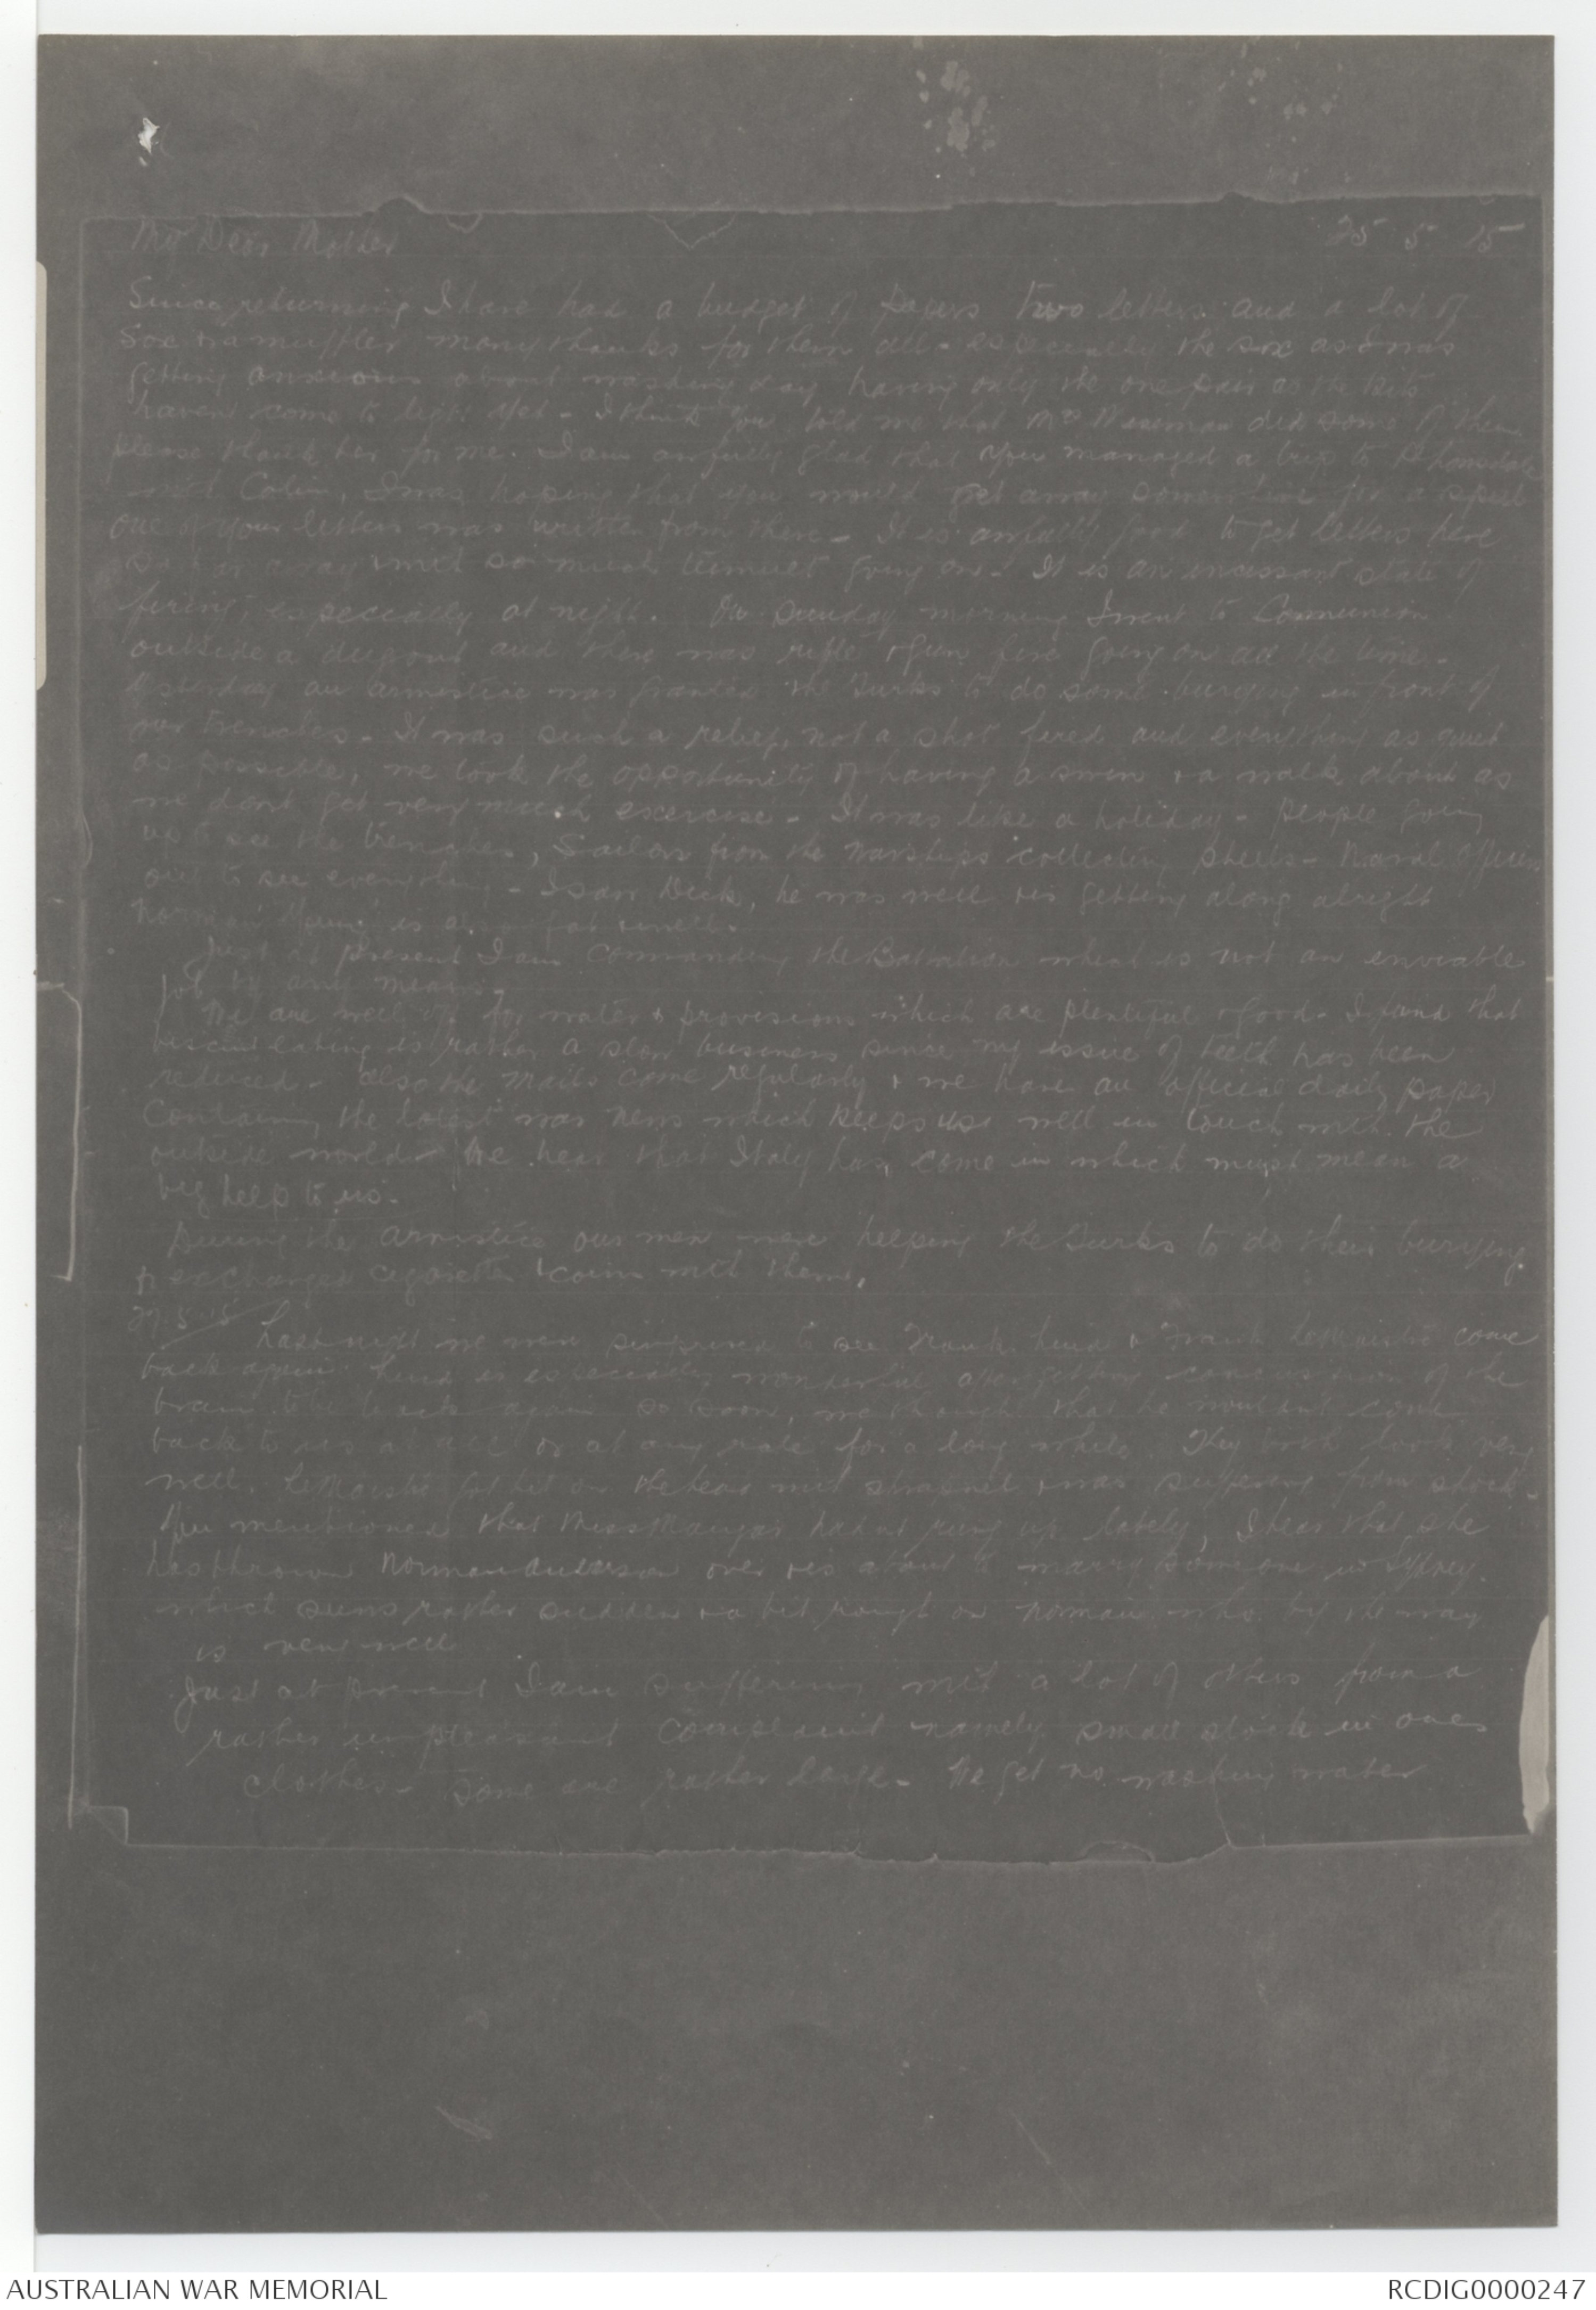 My Dear Mother 25 5 15
Since returning I have had a budget of papers two letters and a lot of
Sox & a muffler many thanks for them all - especially the sox as I was
getting anxious about washing day having only the one pair as the kits
havent come to light yet - I think you told me that Mrs Wiseman did some of them
please thank her for me. I am awfully glad that you managed a trip to Pt Lonsdale
with Colin, I was hoping that you would get away sometime for a spell
one of your letters was written from there - It is awfully good to get letters here
so far away with so much tumult going on - It is an incessant state of
firing, especially at night. On Sunday morning I went to Communion
outside a dugout and there was rifle & gun fire going on all the time -
Yesterday an armistice was granted the Turks to do some burying in front of
our trenches - It was such a relief, not a shot fired and everything as quiet
as possible, we took the opportunity of having a swim & a walk about as
we dont get very much exercise - It was like a holiday - people going
up to see the trenches, Sailors from the warships collecting shells - Naval Officers
out to see everything - I saw Dick, he was well & is getting along alright
Norman is also fat & well -
Just at present I am Commanding the Battalion which is not an enviable
job by any means -
We are well off for water & provisions which are plentiful & good - I find that
biscuit eating is rather a slow business since my issue of teeth has been
reduced - also the mails come regularly & we have an official daily paper
Containing the latest war news which keeps us well in touch with the
outside world - We hear that Italy has come in which must mean a
big help to us -
During the armistice our men were helping the Turks to do their burying
& exchanged cigarettes & coins with them.
27.5.15 Last night we were surprised to see Frank & Frank LeMaistre come
back again. is especially wonderful after getting concussion of the
brain to be back again so soon, we thought that he wouldnt come
back to us at all or at any rate for a long while. They both look very
well. LeMaistre got hit on the head with shrapnel & was suffering from shock -
You mentioned that Miss hadnt rung up lately, I hear that she
has thrown Norman over & is about to marry someone in Sydney.
which seems rather sudden & a bit rough on Norman who by the way
is very well
Just at present I am suffering with a lot of others from a
rather unpleasant complaint namely small stock in ones
clothes - Some are rather large - We get no washing water
AUSTRALIAN WAR MEMORIAL RCDIG0000247